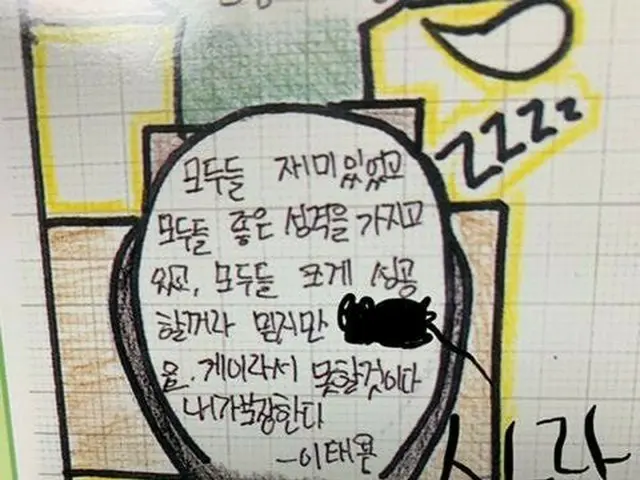 ZZZZ
모두들 재미있었고
모두들 좋은 성격을 가지고
있고, 모두들 크게 성공
할꺼라 믿지만
음. 게이라서 못할것이다
내가 보장한다
-이태